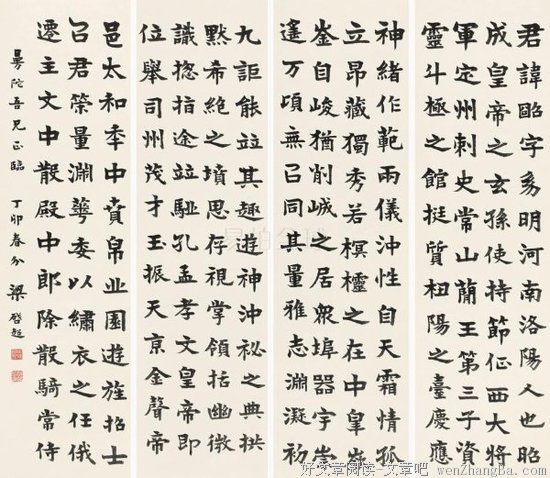 君諱昭字㓜明河南洛陽人也昭
成皇帝之玄孫使持節征西大將
軍定州刺史常山蕑王第三子資
靈斗極之館挺質杻陽之臺慶應
神緒作範兩儀沖性自天霜情孤
立昂藏獨秀若榠櫺之在中皐嶷
崟自峻猶削峸之居衆埠器宇崇
邃万頃無㠯同其量雅志淵凝初
九詎能竝其趣遊神沖秘之典拱
默希絶之墳思存視掌領括幽微
識揔指途竝駈孔孟孝文皇帝即
位舉司州茂才玉振天京金聲帝
邑太和季中賁帛业園遊旌招士
召君策量淵蕚委以繡衣之任俄
遷主文中散殿中郎除散騎常侍
曼陀吾兄正臨 丁卯春分 梁啓超
好文章阅读-文章吧 wenZhangBa.com